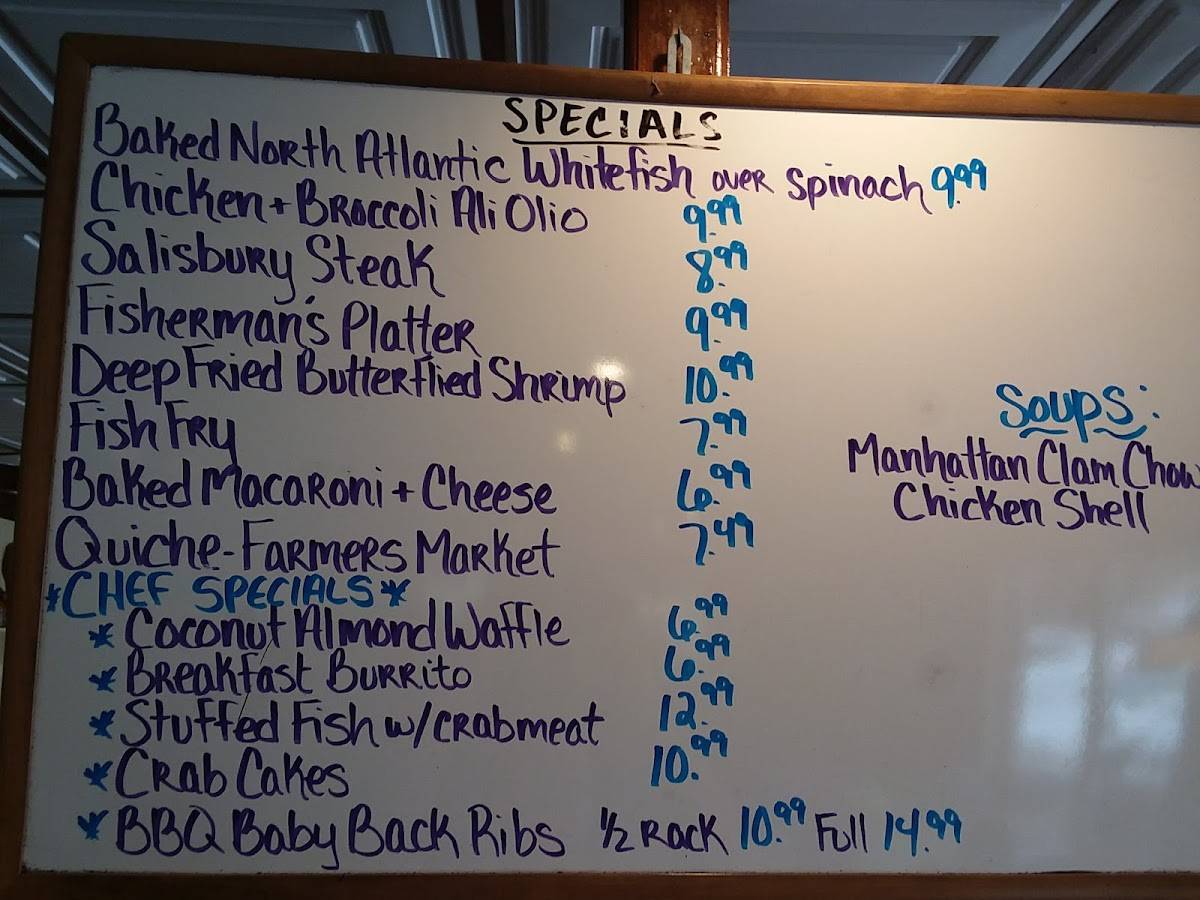 SPECIALS
Baked North Atlantic Whitefish over Spinach 9.99
Chicken + Broccoli Ali Olio 9.99
Salisbury Steak 8.99
Fisherman's Platter 9.99
Deep Fried Butterflied Shrimp 10.99
Fish Fry 7.99
Baked Macaroni + Cheese 6.99
Quiche - Farmers Market 7.49
*CHEF SPECIALS*
* Coconut Almond Waffle 6.99
* Breakfast Burrito 6.99
* Stuffed Fish w/crabmeat 12.99
* Crab Cakes 10.99
* BBQ Baby Back Ribs 1/2 Rack 10.99 Full 14.99
Soups:
Manhattan Clam Chow
Chicken Shell